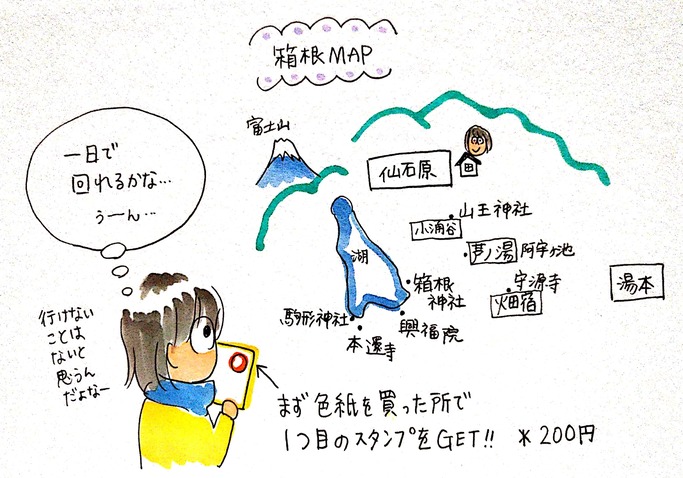 箱根MAP
富士山
一日で
回れるかな…
うーん…
仙石原
山王神社
小涌谷
芦ノ湯 阿字ヶ池
湖
箱根
神社
守源寺
畑宿
湯本
駒形神社
興福院
本還寺
行けない
ことは
ないと
思うん
だよなー
まず色紙を買った所で
1つ目のスタンプをGET!! *200円